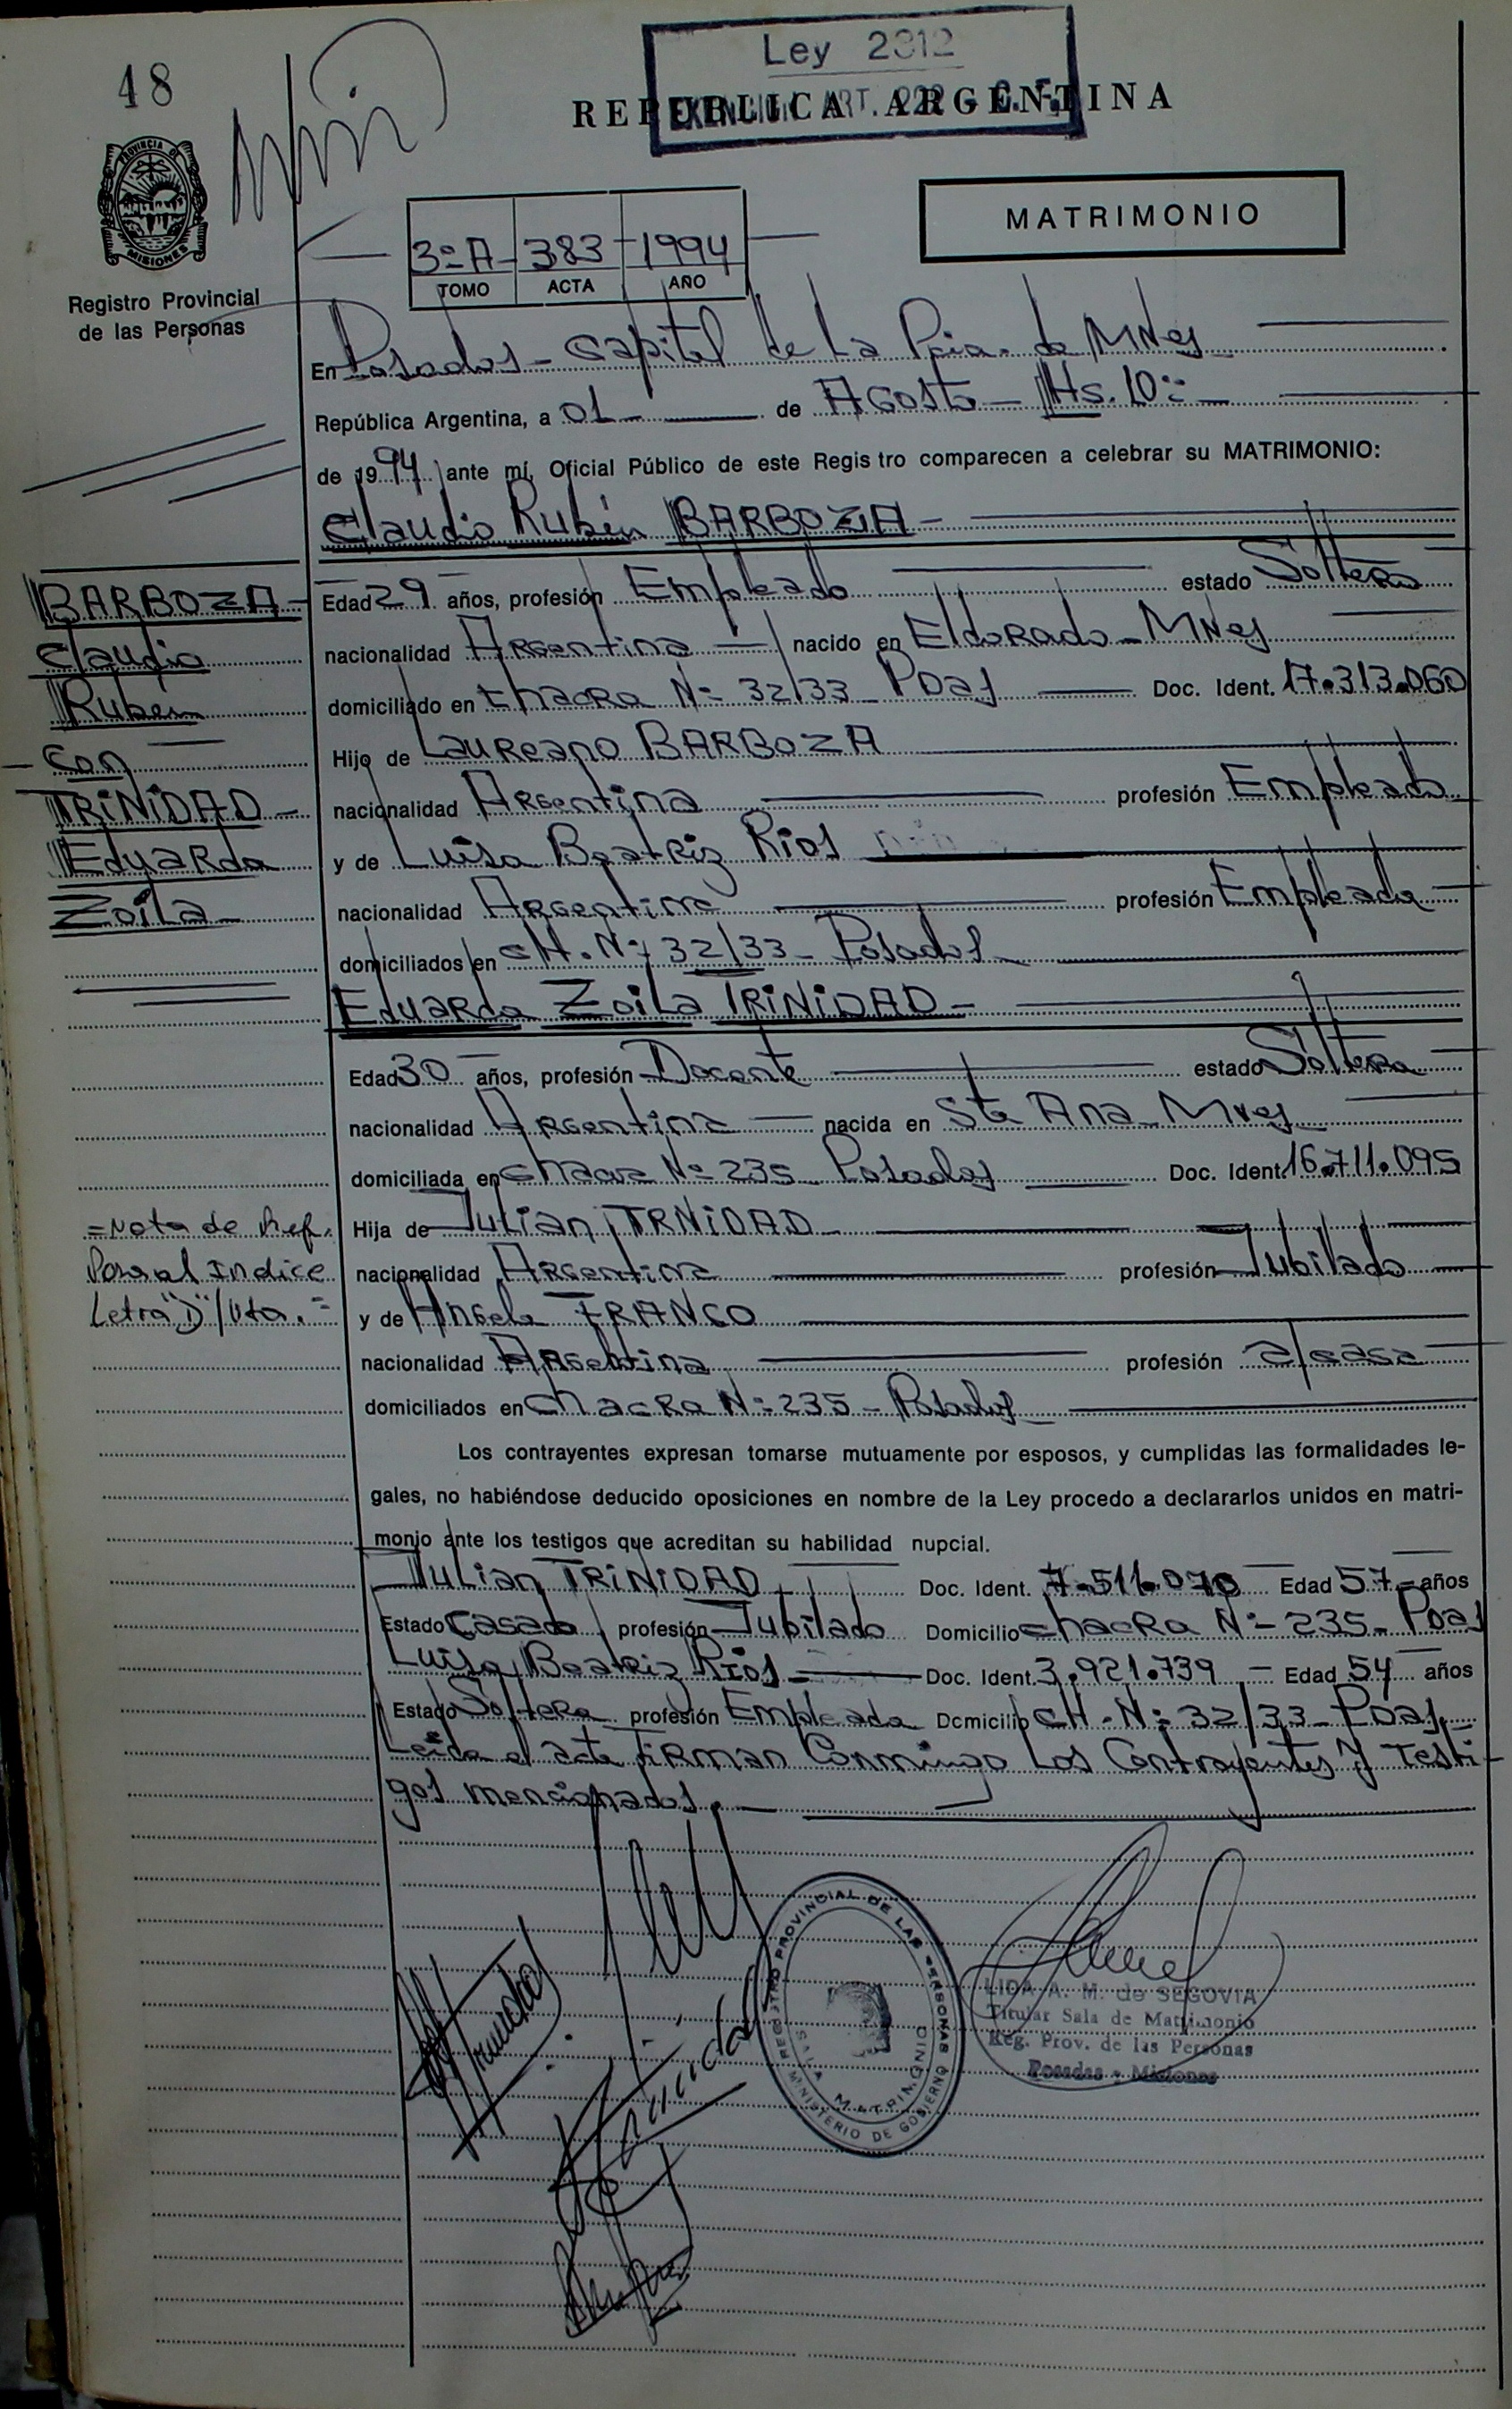 48
Ley 2312
REPUBLICA ARGENTINA
MATRIMONIO
3º A - 383 - 1994
TOMO ACTA AÑO
PROVINCIA DE MISIONES
Registro Provincial
de las Personas
En Posadas - Capital de La Pcia. de Mnes
República Argentina, a 01 - de Agosto - Hs. 10:-
de 1994 ante mí, Oficial Público de este Registro comparecen a celebrar su MATRIMONIO:
Claudio Rubén BARBOZA -
BARBOZA -
Claudio
Rubén
- con
TRINIDAD -
Eduarda
Zoila -
Edad 29 años, profesión Empleado estado Soltero
nacionalidad Argentina - nacido en Eldorado - Mnes
domiciliado en Chacra Nº 32/33 - Pdas Doc. Ident. 17.313.060
Hijo de Laureano BARBOZA
nacionalidad Argentina profesión Empleado
y de Luisa Beatriz Rios
nacionalidad Argentina profesión Empleada
domiciliados en CH. Nº 32/33 - Posadas -
Eduarda Zoila TRINIDAD -
Edad 30 años, profesión Docente estado Soltera
nacionalidad Argentina nacida en Sta Ana - Mnes
domiciliada en Chacra Nº 235 - Posadas Doc. Ident. 16.711.095
Hija de Julian TRNIDAD
nacionalidad Argentina profesión Jubilado
y de Angela FRANCO
nacionalidad Argentina profesión a/casa
domiciliados en Chacra Nº 235 - Posadas
= Nota de Ref.
Para al Indice
Letra "D" / Vta. =
Los contrayentes expresan tomarse mutuamente por esposos, y cumplidas las formalidades le-
gales, no habiéndose deducido oposiciones en nombre de la Ley procedo a declararlos unidos en matri-
monio ante los testigos que acreditan su habilidad nupcial.
Julian TRINIDAD - Doc. Ident. 7.511.070 Edad 57 - años
Estado Casado profesión Jubilado Domicilio Chacra Nº - 235 - Pdas
Luisa Beatriz Rios - Doc. Ident. 3.921.739 - Edad 54 años
Estado Soltera profesión Empleada Domicilio CH. Nº 32/33 - Pdas.
Leida el acta Firman Conmingo Los Contrayentes y Testi-
gos mencionados. -
REGISTRO PROVINCIAL DE LAS PERSONAS
SALA MATRIMONIO
MINISTERIO DE GOBIERNO
LIDA A. M. de SEGOVIA
Titular Sala de Matrimonio
Reg. Prov. de las Personas
Posadas - Misiones